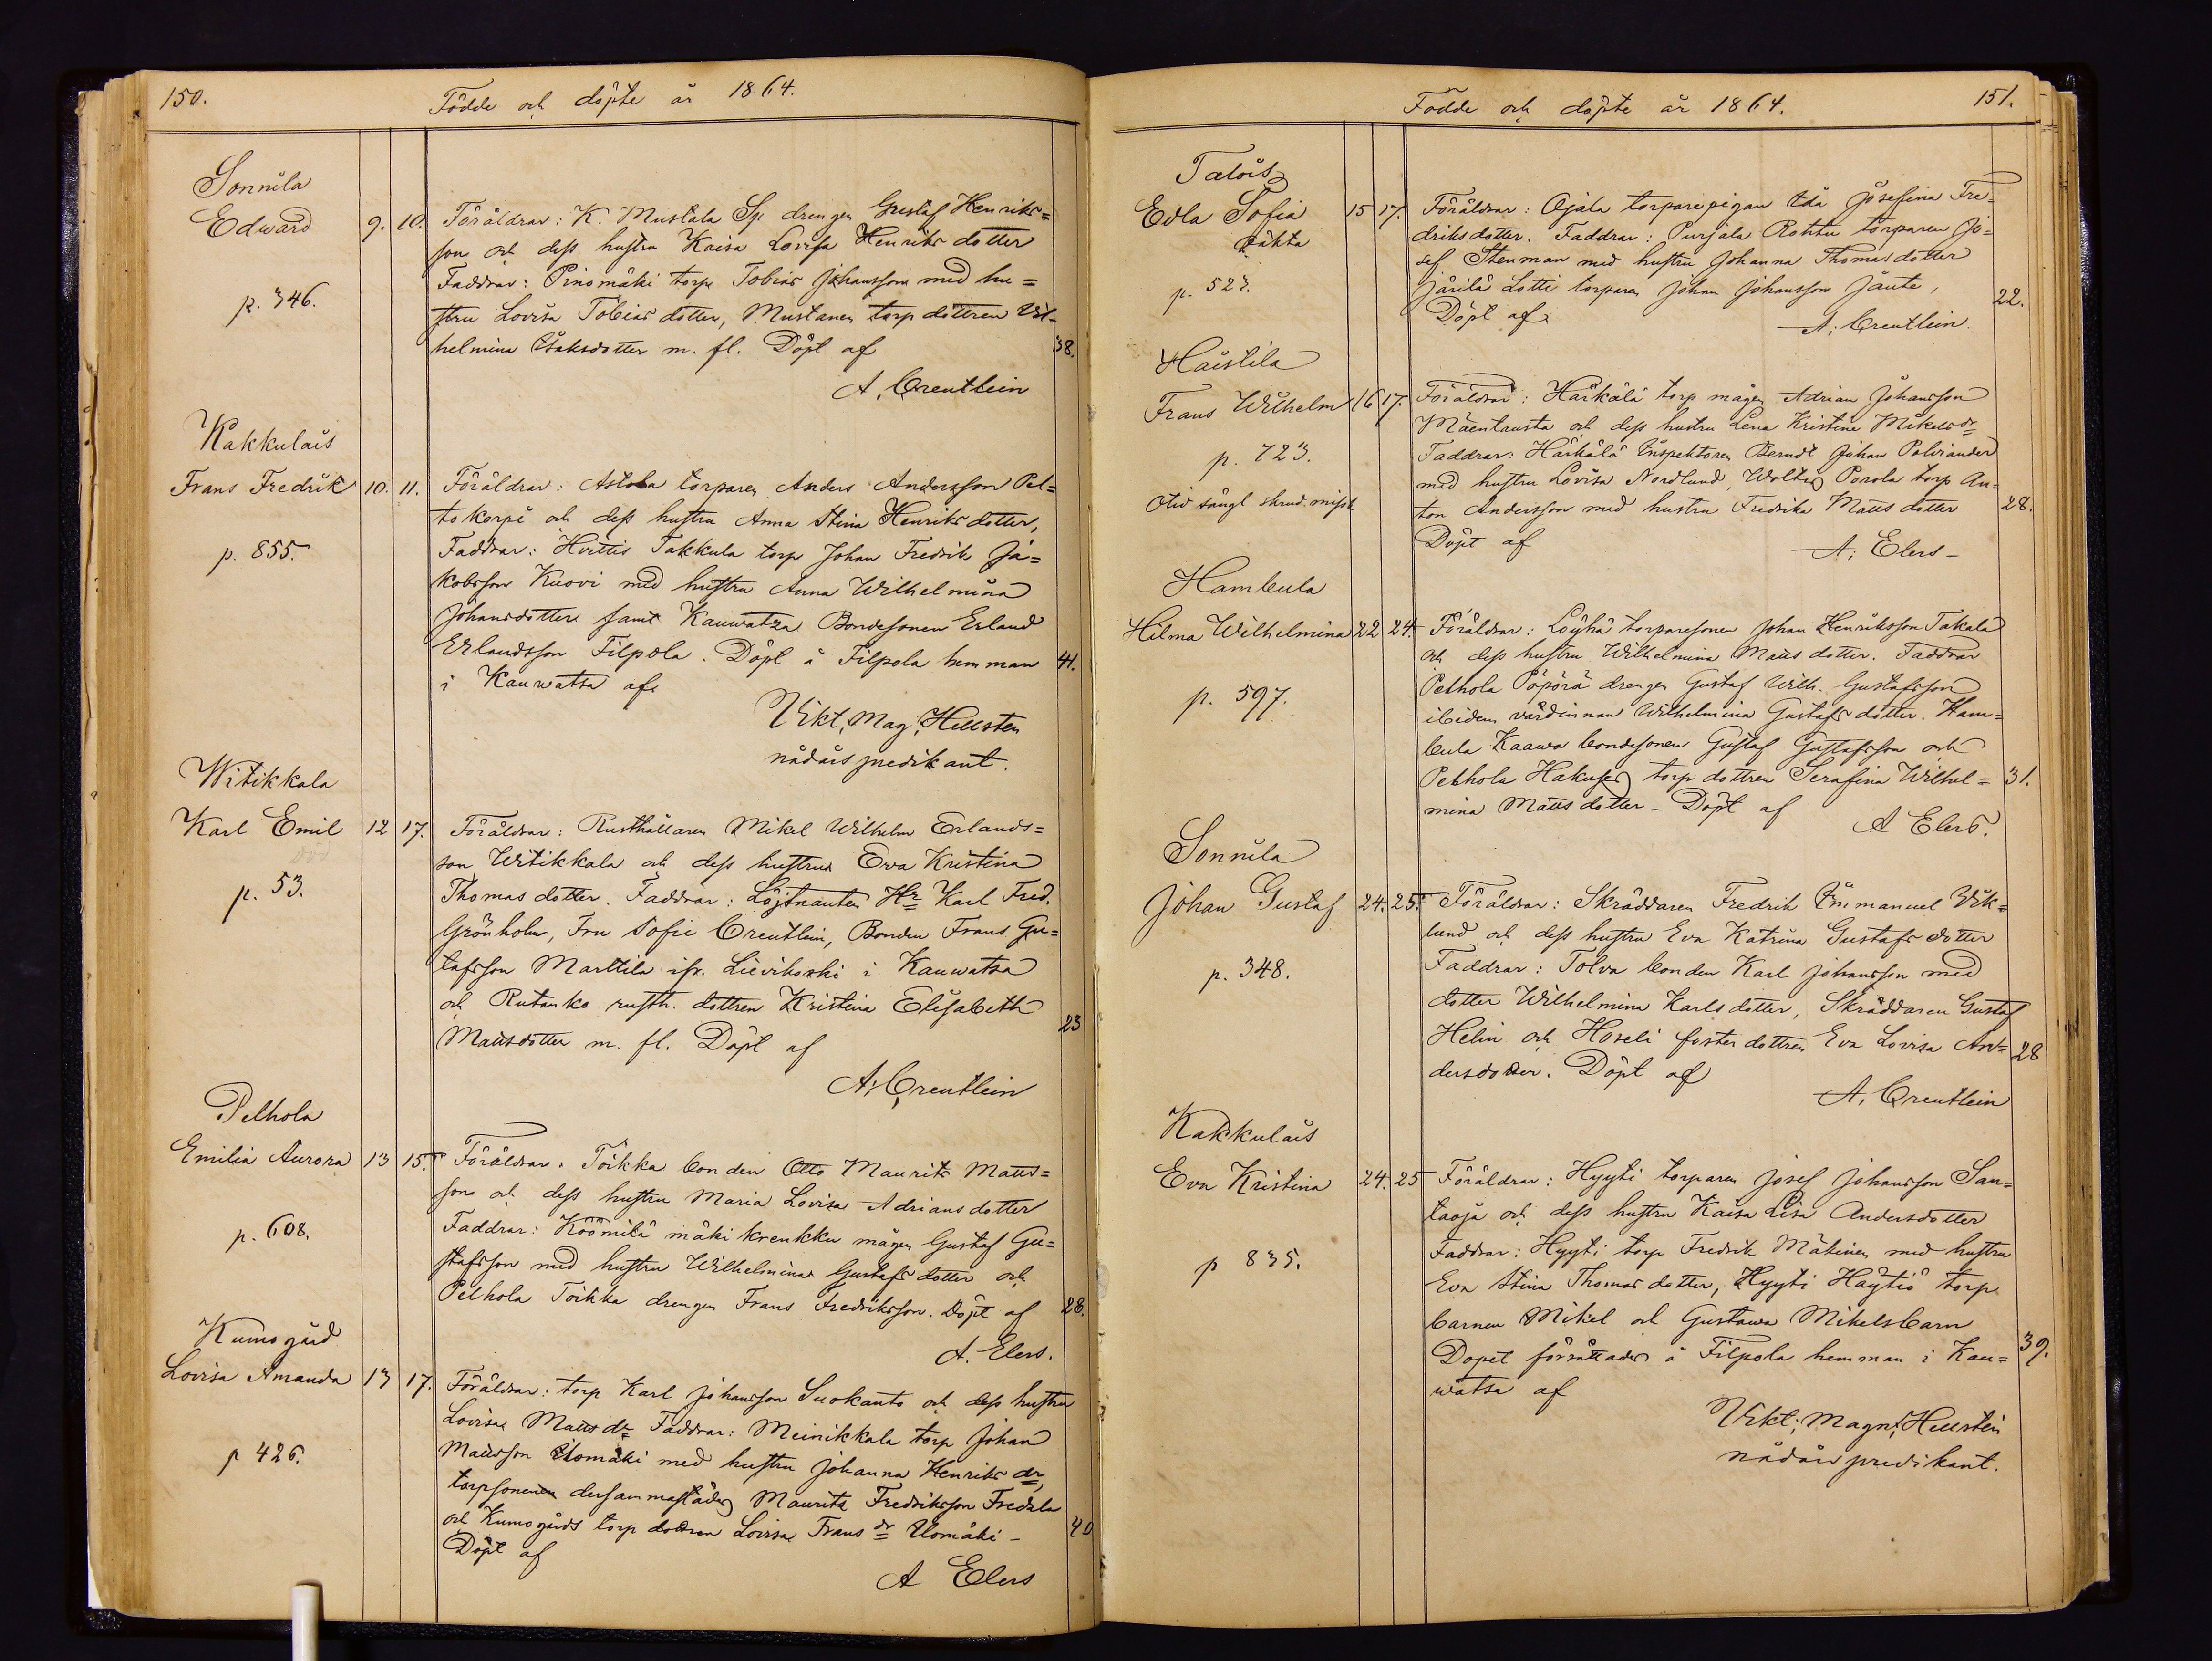 150.
Födde och döpte år 1864.
Sonnila
Edward 9. 10.
p. 346.
Föräldrar: K. Mustala Sp. drengen Gustaf Henriks=
son och dess hustru Kaisa Lovisa Henriks dotter
Faddrar: Pinomäki torp. Tobias Johansson med hu=
stru Lovisa Tobias dotter, Mustanen torp dottren Vil-
helmina Isaksdotter m. fl. Döpt af 38.
A. Creutlein
Kakkulais
Frans Fredrik 10. 11.
p. 855.
Föräldrar: Astola torparen Anders Andersson Pel=
tokorpi och dess hustru Anna Stina Henriks dotter,
Faddrar: Hvittis Takkula torp. Johan Fredrik Ja=
kobsson Kuovi med hustru Anna Wilhelmina
Johansdotter samt Kauwatza Bondesonen Erland
Erlandsson Filpola. Döpt å Filpola hemman 41.
i Kauwatsa af
Vikt. Mag. Hellsten
nådårs predikant.
Witikkala
Karl Emil 12 17.
död
p. 53.
Föräldrar: Rusthållaren Mikel Wilhelm Erlands=
son Witikkala och dess hustru Eva Kristina
Thomas dotter. Faddrar: Löjtnanten Hr Karl Fred.
Grönholm, Fru Sofie Creutlein, Bonden Frans Gu=
tafsson Marttila ifr. Lievikoski i Kauwatsa
och Rutanko rusth. dottren Kristina Elisabeth
Matts dotter m. fl. Döpt af 23
A. Creutlein
Pelhola
Emilia Aurora 13 15.
p. 608.
Föräldrar: Töikka bonden Otto Maurits Matts=
son och dess hustru Maria Lovisa Adrians dotter
Faddrar: Köömilä mäki krenkku mågen Gustaf Gu=
stafsson med hustru Wilhelmina Gustafs dotter och
Pelhola Töikka drengen Frans Fredriksson. Döpt af 28.
A. Elers.
Kumogård
Lovisa Amanda 13 17.
p 426.
Föräldrar: torp Karl Johansson Suokanto och dess hustru
Lovisa Matts dr Faddrar: Meinikkala torp Johan
Mattsson Uomäki med hustru Johanna Henriks dr,
torpsonen dersammastädes Maurits Fredriksson Fredala
och Kumogårds torp dottren Lovisa Frans dr Uomäki - 40
Döpt af
A Elers
Födde och döpte år 1864.
151.
Talois
Edla Sofia 15 17.
oäkta
p. 527.
Föräldrar: Ojala torparepigan Ida Josefina Fre=
driksdotter. Faddrar: Purjala Rohtu torparen Jo=
sef Stenman med hustru Johanna Thomas dotter
Järilä Lotti torparen Johan Johansson Jäute, 22.
Döpt af
A. Creutlein.
Haistila
Frans Wilhelm 16 17.
p. 723.
Föräldrar: Härkälä torp mågen Adrian Johansson
Mäentausta och dess hustru Lena Kristina Mikels dr
Faddrar: Härkälä Inspektoren Berndt Johan Polviander
med hustru Lovisa Nordlund, Woltis Porola torp An=
ton Andersson med hustru Fredrika Matts dotter 28.
Döpt af
A. Elers -
Hambula
Hilma Wilhelmina 22 24.
p. 597.
Föräldrar: Löyhä torparesonen Johan Henriksson Takala
och dess hustru Wilhelmina Matts dotter. Faddrar
Pelhola Pöpörä drengen Gustaf Wilh. Gustafsson
ibidem värdinnan Wilhelmina Gustafs dotter. Ham=
bula Kaawa bondesonen Gustaf Gustafsson och
Pelhola Hakuses torp dottren Serafina Wilhel= 31.
mina Matts dotter - Döpt af
A Elers.
Sonnila
Johan Gustaf 24. 25.
p. 348.
Föräldrar: Skräddaren Fredrik Emanuel Vik=
lund och dess hustru Eva Katrina Gustafs dotter
Faddrar: Tolva bonden Karl Johansson med
dotter Wilhelmina Karls dotter, Skräddaren Gustaf
Helin och Hoseli foster dottren Eva Lovisa An= 28
dersdotter. Döpt af
A. Creutlein
Kakkulais
Eva Kristina 24. 25
p 835.
Föräldrar: Hyyti torparen Josef Johansson San=
taoja och dess hustru Kaisa Lisa Andersdotter
Faddrar: Hyyti torp Fredrik Mäkinen med hustru
Eva Stina Thomas dotter, Hyyti Häytiö torp.
barnen Mikel och Gustawa Mikelsbarn
Dopet förrättades å Filpola hemman i Kau= 39.
watsa af
Vikt. Magn. Hellsten
nådårs predikant.